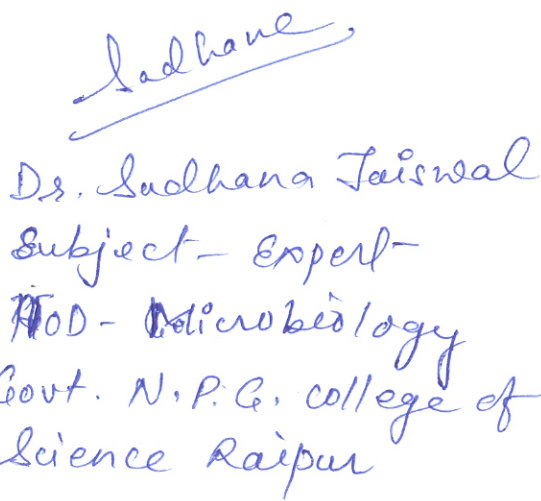 Sadhana
Dr. Sadhana Jaiswal
Subject - Expert
HOD - Microbiology
Govt. N.P.G. college of
Science Raipur